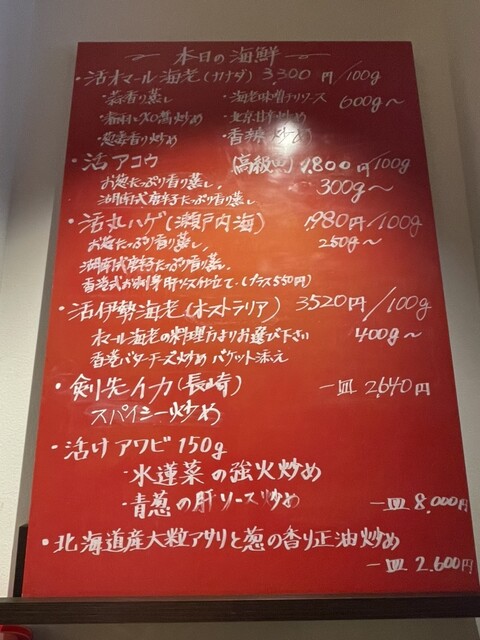 本日の海鮮
・活オマール海老(カナダ) 3,300円/100g
・蒜香り蒸し ・海老味噌チリソース 600g〜
炒め ・北京甘辛炒め
・葱姜香り炒め ・香辣炒め
・活アコウ (高級魚) 1,800円/100g
お葱たっぷり香り蒸し, 300g〜
湖南式唐辛子たっぷり香り蒸し
・活丸ハゲ(瀬戸内海) 1,980円/100g
お葱たっぷり香り蒸し, 250g〜
湖南式唐辛子たっぷり香り蒸し
香港式お刺身肝ソース仕立て・(プラス550円)
・活伊勢海老(オーストラリア) 3520円/100g
オマール海老の料理方よりお選び下さい 400g〜
香港バターチーズ炒め バケット添え
・剣先イカ(長崎) 一皿 2,640円
スパイシー炒め
・活けアワビ150g
・水蓮菜の強火炒め
・青葱の肝ソース炒め 一皿 8,000円
・北海道産大粒アサリと葱の香り正油炒め
一皿 2,600円